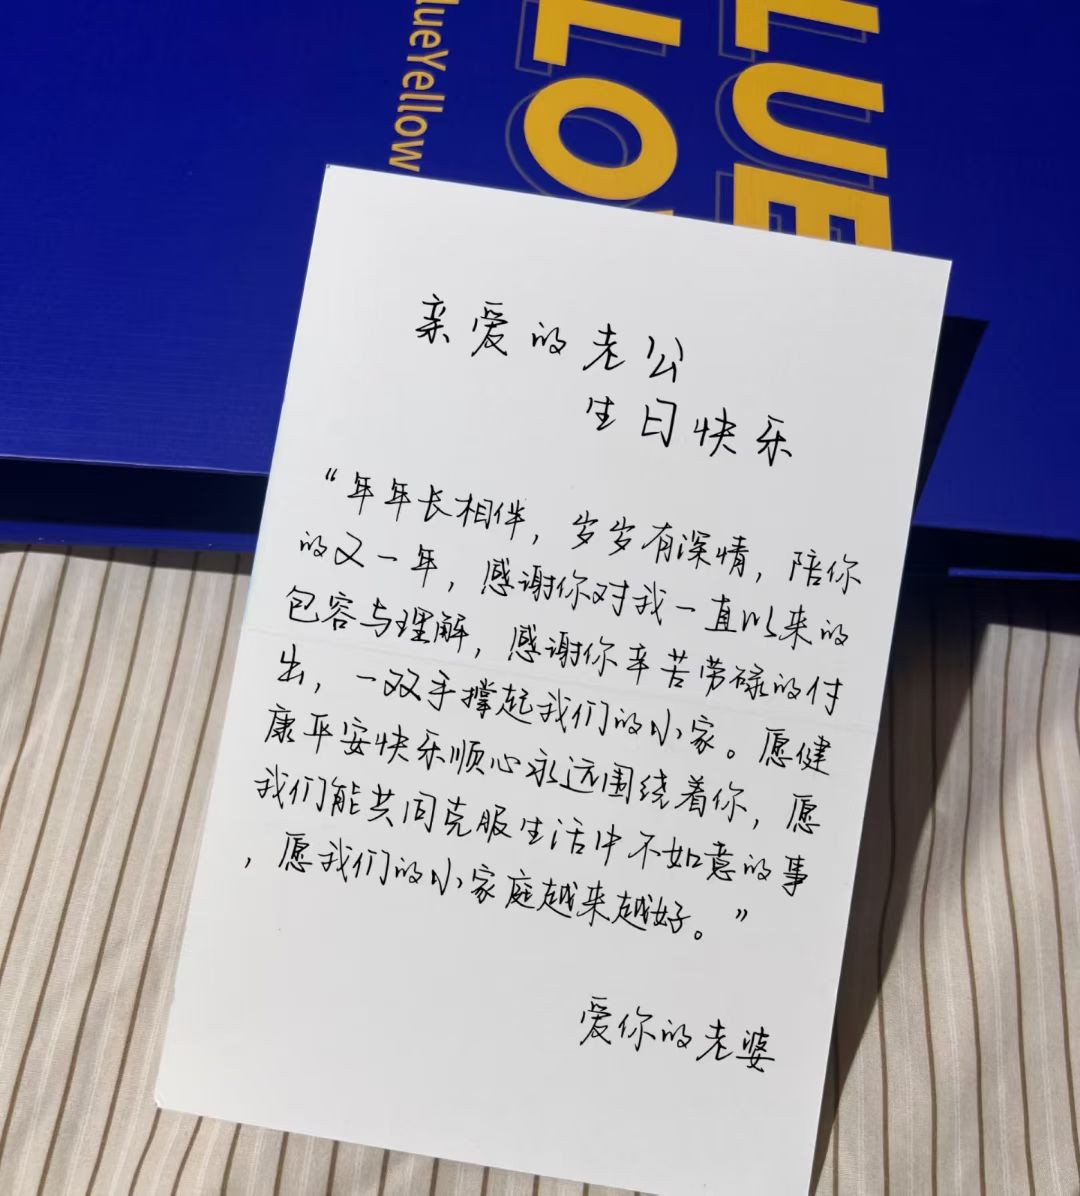 lueYellow
LUE
LLO
亲爱的老公
生日快乐
“年年长相伴，岁岁有深情，陪你
的又一年，感谢你对我一直以来的
包容与理解，感谢你辛苦劳碌的付
出，一双手撑起我们的小家。愿健
康平安快乐顺心永远围绕着你，愿
我们能共同克服生活中不如意的事
，愿我们的小家庭越来越好。”
爱你的老婆